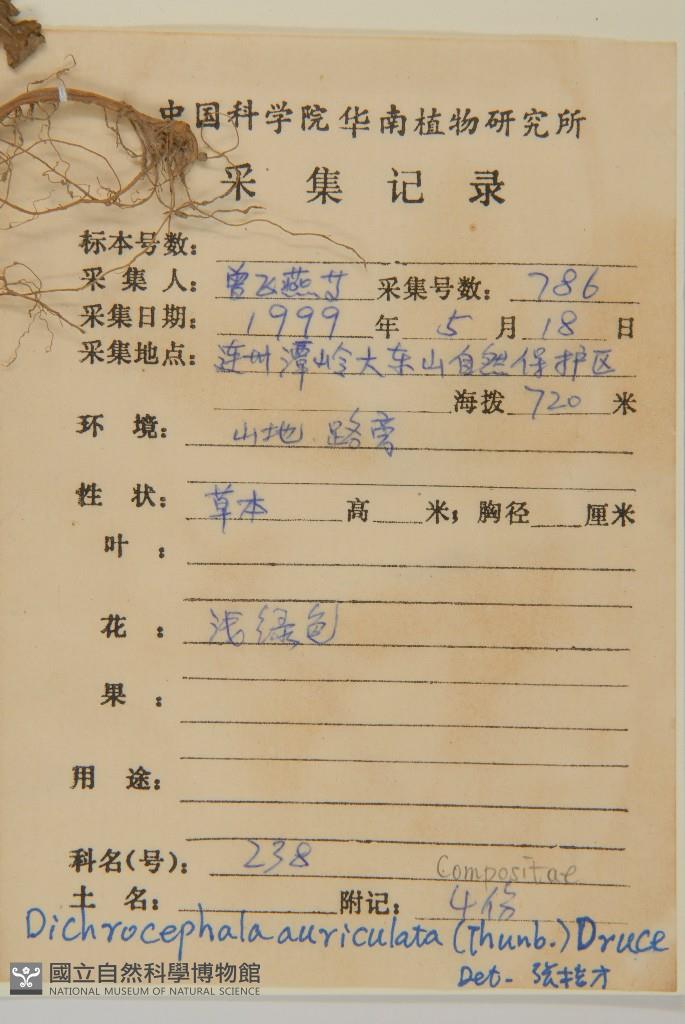 中国科学院华南植物研究所
采集记录
标本号数：
采集人：曾飞燕等 采集号数：786
采集日期：1999年5月18日
采集地点：连州潭岭大东山自然保护区
海拨720米
环境：山地 路旁
性状：草本 高 米；胸径 厘米
叶：
花：浅绿色
果：
用途：
科名(号)：238 Compositae
土名： 附记：4份
Dichrocephala auriculata (Thunb.) Druce
Det- 张桂才
國立自然科學博物館
NATIONAL MUSEUM OF NATURAL SCIENCE